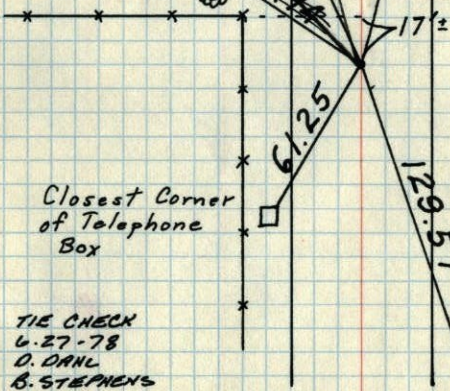 17'±
61.25
129.51
Closest Corner
of Telephone
Box
TIE CHECK
6-27-78
D. DAHL
B. STEPHENS